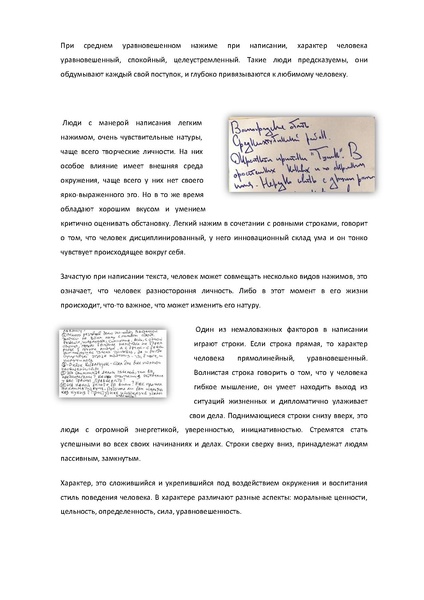 При среднем уравновешенном нажиме при написании, характер человека
уравновешенный, спокойный, целеустремленный. Такие люди предсказуемы, они
обдумывают каждый свой поступок, и глубоко привязываются к любимому человеку.
Люди с манерой написания легким
нажимом, очень чувствительные натуры,
чаще всего творческие личности. На них
особое влияние имеет внешняя среда
окружения, чаще всего у них нет своего
ярко-выраженного эго. Но в то же время
обладают хорошим вкусом и умением
критично оценивать обстановку. Легкий нажим в сочетании с ровными строками, говорит
о том, что человек дисциплинированный, у него инновационный склад ума и он тонко
чувствует происходящее вокруг себя.
Зачастую при написании текста, человек может совмещать несколько видов нажимов, это
означает, что человек разностороння личность. Либо в этот момент в его жизни
происходит, что-то важное, что может изменить его натуру.
Один из немаловажных факторов в написании
играют строки. Если строка прямая, то характер
человека прямолинейный, уравновешенный.
Волнистая строка говорить о том, что у человека
гибкое мышление, он умеет находить выход из
ситуаций жизненных и дипломатично улаживает
свои дела. Поднимающиеся строки снизу вверх, это
люди с огромной энергетикой, уверенностью, инициативностью. Стремятся стать
успешными во всех своих начинаниях и делах. Строки сверху вниз, принадлежат людям
пассивным, замкнутым.
Характер, это сложившийся и укрепившийся под воздействием окружения и воспитания
стиль поведения человека. В характере различают разные аспекты: моральные ценности,
цельность, определенность, сила, уравновешенность.